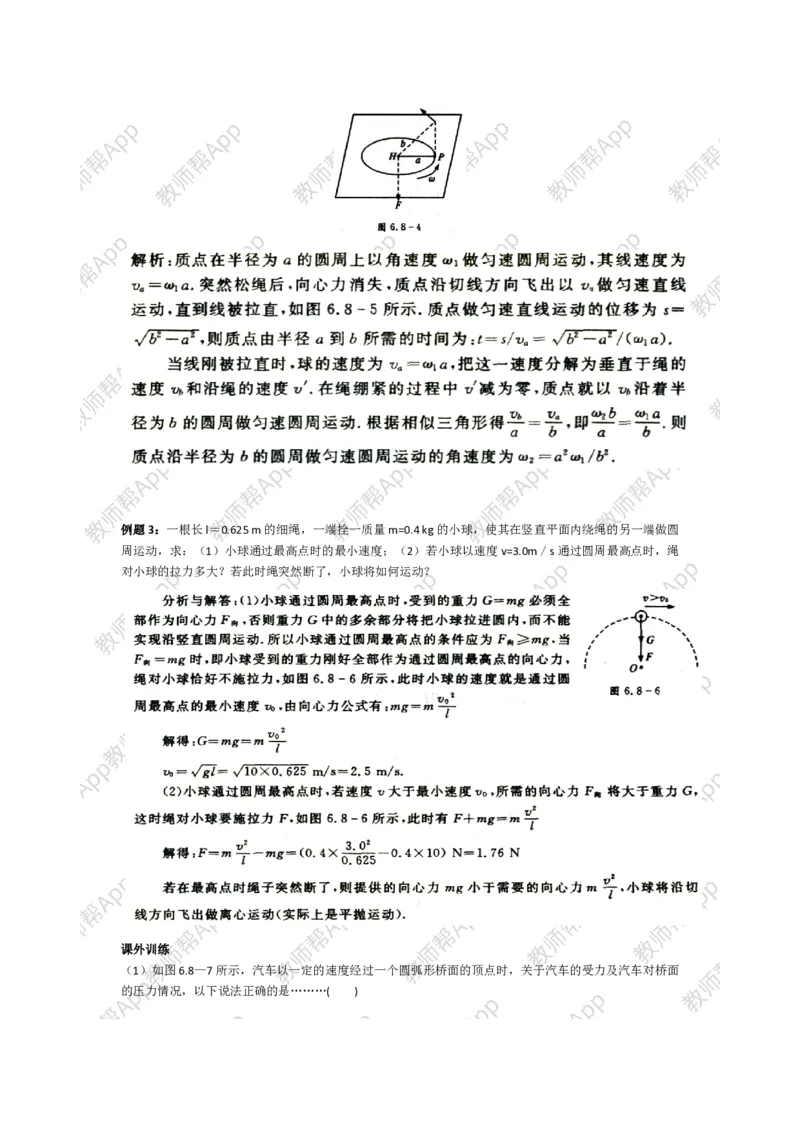 b
H
a
P
ω
F
图 6.8-4
解析:质点在半径为 a 的圆周上以角速度 ω₁ 做匀速圆周运动,其线速度为
vₐ=ω₁a.突然松绳后,向心力消失,质点沿切线方向飞出以 vₐ 做匀速直线
运动,直到线被拉直,如图 6.8-5 所示.质点做匀速直线运动的位移为 s=
√(b²-a²),则质点由半径 a 到 b 所需的时间为:t=s/vₐ=√(b²-a²)/(ω₁a).
当线刚被拉直时,球的速度为 vₐ=ω₁a,把这一速度分解为垂直于绳的
速度 v_b 和沿绳的速度 v′.在绳绷紧的过程中 v′减为零,质点就以 v_b 沿着半
径为 b 的圆周做匀速圆周运动.根据相似三角形得 v_b/a=vₐ/b,即 ω₂b/a=ω₁a/b.则
质点沿半径为 b 的圆周做匀速圆周运动的角速度为 ω₂=a²ω₁/b².
例题 3:一根长 l=0.625 m 的细绳,一端拴一质量 m=0.4 kg 的小球,使其在竖直平面内绕绳的另一端做圆
周运动,求:(1)小球通过最高点时的最小速度;(2)若小球以速度 v=3.0m/s 通过圆周最高点时,绳
对小球的拉力多大?若此时绳突然断了,小球将如何运动?
分析与解答:(1)小球通过圆周最高点时,受到的重力 G=mg 必须全
部作为向心力 F向,否则重力 G 中的多余部分将把小球拉进圆内,而不能
实现沿竖直圆周运动.所以小球通过圆周最高点的条件应为 F向≥mg.当
F向=mg 时,即小球受到的重力刚好全部作为通过圆周最高点的向心力,
绳对小球恰好不施拉力,如图 6.8-6 所示,此时小球的速度就是通过圆
周最高点的最小速度 v₀,由向心力公式有:mg=m v₀²/l
v>v₀
G
F
O
图 6.8-6
解得:G=mg=m v₀²/l
v₀=√(gl)=√(10×0.625) m/s=2.5 m/s.
(2)小球通过圆周最高点时,若速度 v 大于最小速度 v₀,所需的向心力 F向 将大于重力 G,
这时绳对小球要施拉力 F,如图 6.8-6 所示,此时有 F+mg=m v²/l
解得:F=m v²/l-mg=(0.4×3.0²/0.625-0.4×10) N=1.76 N
若在最高点时绳子突然断了,则提供的向心力 mg 小于需要的向心力 m v²/l,小球将沿切
线方向飞出做离心运动(实际上是平抛运动).
课外训练
(1)如图 6.8—7 所示,汽车以一定的速度经过一个圆弧形桥面的顶点时,关于汽车的受力及汽车对桥面
的压力情况,以下说法正确的是………( )
教师帮App